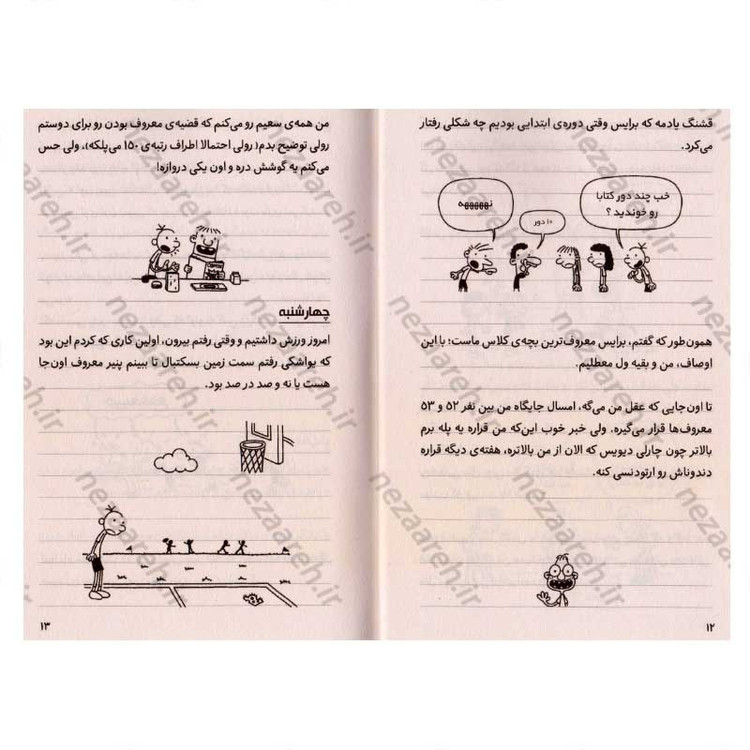 قشنگ یادمه که برایس وقتی دوره‌ی ابتدایی بودیم چه شکلی رفتار
می‌کرد.
خب چند دور کتابا
رو خوندید ؟
۱۰ دور
نههههههه
همون‌طور که گفتم، برایس معروف‌ترین بچه‌ی کلاس ماست؛ با این
اوصاف، من و بقیه ول معطلیم.
تا اون‌جایی که عقل من می‌گه، امسال جایگاه من بین نفر ۵۲ و ۵۳
معروف‌ها قرار می‌گیره. ولی خبر خوب این‌که من قراره یه پله برم
بالاتر چون چارلی دیویس که الان از من بالاتره، هفته‌ی دیگه قراره
دندوناش رو ارتودنسی کنه.
۱۲
من همه‌ی سعیم رو می‌کنم که قضیه‌ی معروف بودن رو برای دوستم
رولی توضیح بدم( رولی احتمالا اطراف رتبه‌ی ۱۵۰ می‌پلکه)، ولی حس
می‌کنم یه گوشش دره و اون یکی دروازه!
چهارشنبه
امروز ورزش داشتیم و وقتی رفتم بیرون، اولین کاری که کردم این بود
که یواشکی رفتم سمت زمین بسکتبال تا ببینم پنیر معروف اون‌جا
هست یا نه و صد در صد بود.
۱۳
nezaareh.ir